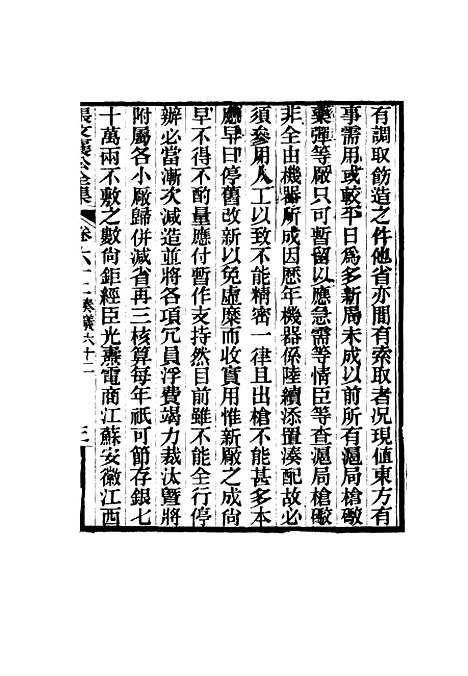 有調取飭造之件他省亦間有索取者況現値東方有
事需用或較平日爲多新局未成以前所有滬局槍礮
藥彈等厰只可暫留以應急需等情臣等查滬局槍礮
非全由機器所成因歷年機器係陸續添置湊配故必
須參用人工以致不能精密一律且出槍不能甚多本
應早日停舊改新以免虛糜而收實用惟新厰之成尚
早不得不酌量應付暫作支持然目前雖不能全行停
辦必當漸次減造並將各項冗員浮費竭力裁汰曁將
附屬各小厰歸併減省再三核算每年祇可節存銀七
十萬兩不敷之數尚鉅經臣光燾電商江蘇安徽江西
張文襄公全集 卷六十二 奏議六十二 三